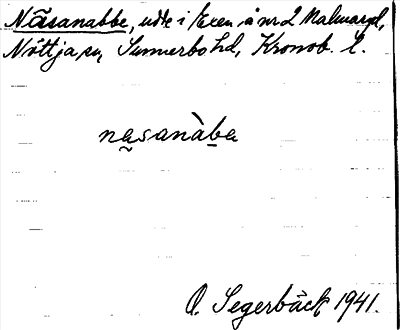 Näsanabbe, udde i Exen å nr 2 Malmaryd,
Nöttja sn, Sunnerbo hd, Kronob. l.
nasanàba
O. Segerbäck 1941.